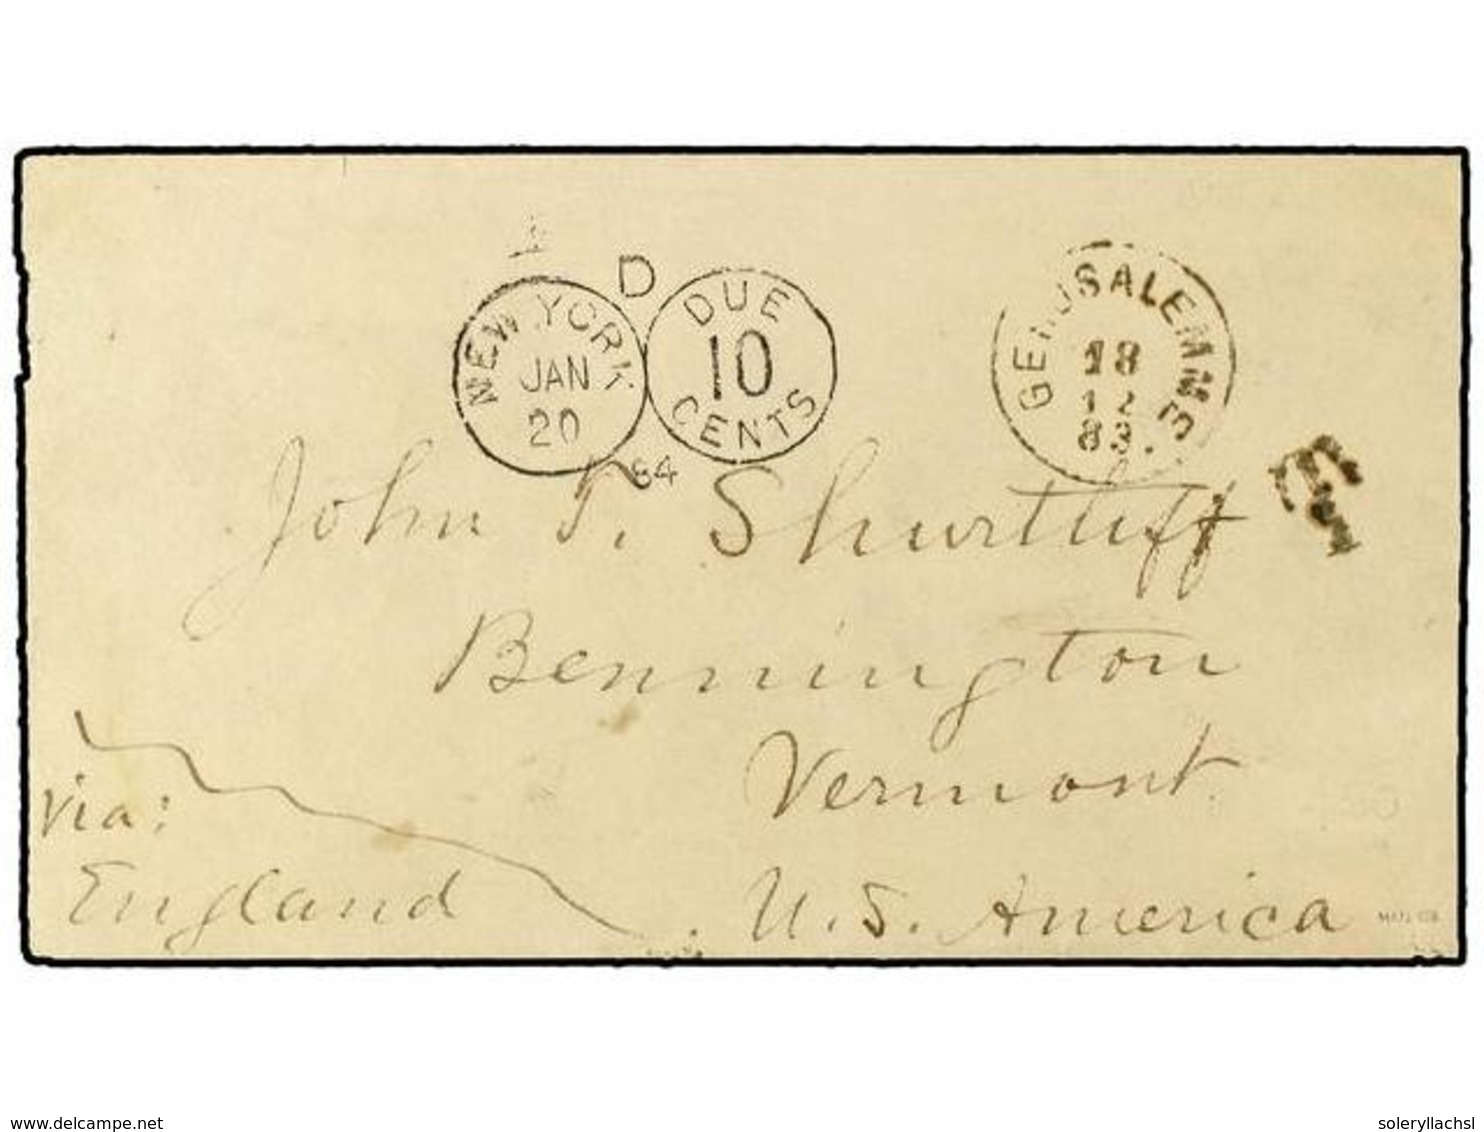 D
NEW YORK
JAN
20
84
DUE
10
CENTS
GERUSALEMME
18
12
83
T
John S. Shurtleff
Bennington
Vermont
U.S. America
via:
England
www.delcampe.net
soleryllachsl